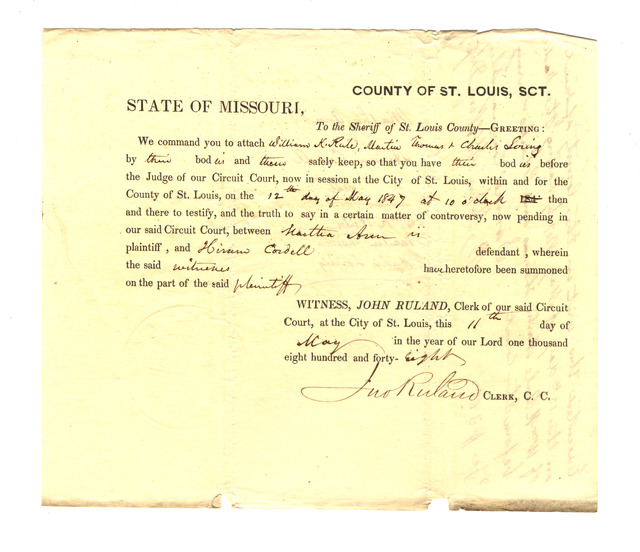 COUNTY OF ST. LOUIS, SCT.
STATE OF MISSOURI,
To the Sheriff of St. Louis County—GREETING:
We command you to attach William K. Rule, Martin Thomas & Charles Loring
by their bodies and them safely keep, so that you have their bodies before
the Judge of our Circuit Court, now in session at the City of St. Louis, within and for the
County of St. Louis, on the 12th day of May 1847 at 10 o'clock then
and there to testify, and the truth to say in a certain matter of controversy, now pending in
our said Circuit Court, between Martha Ann is
plaintiff, and Hiram Cordell defendant, wherein
the said witnesses have heretofore been summoned
on the part of the said plaintiff
WITNESS, JOHN RULAND, Clerk of our said Circuit
Court, at the City of St. Louis, this 11th day of
May in the year of our Lord one thousand
eight hundred and forty-eight
Jno Ruland CLERK, C. C.